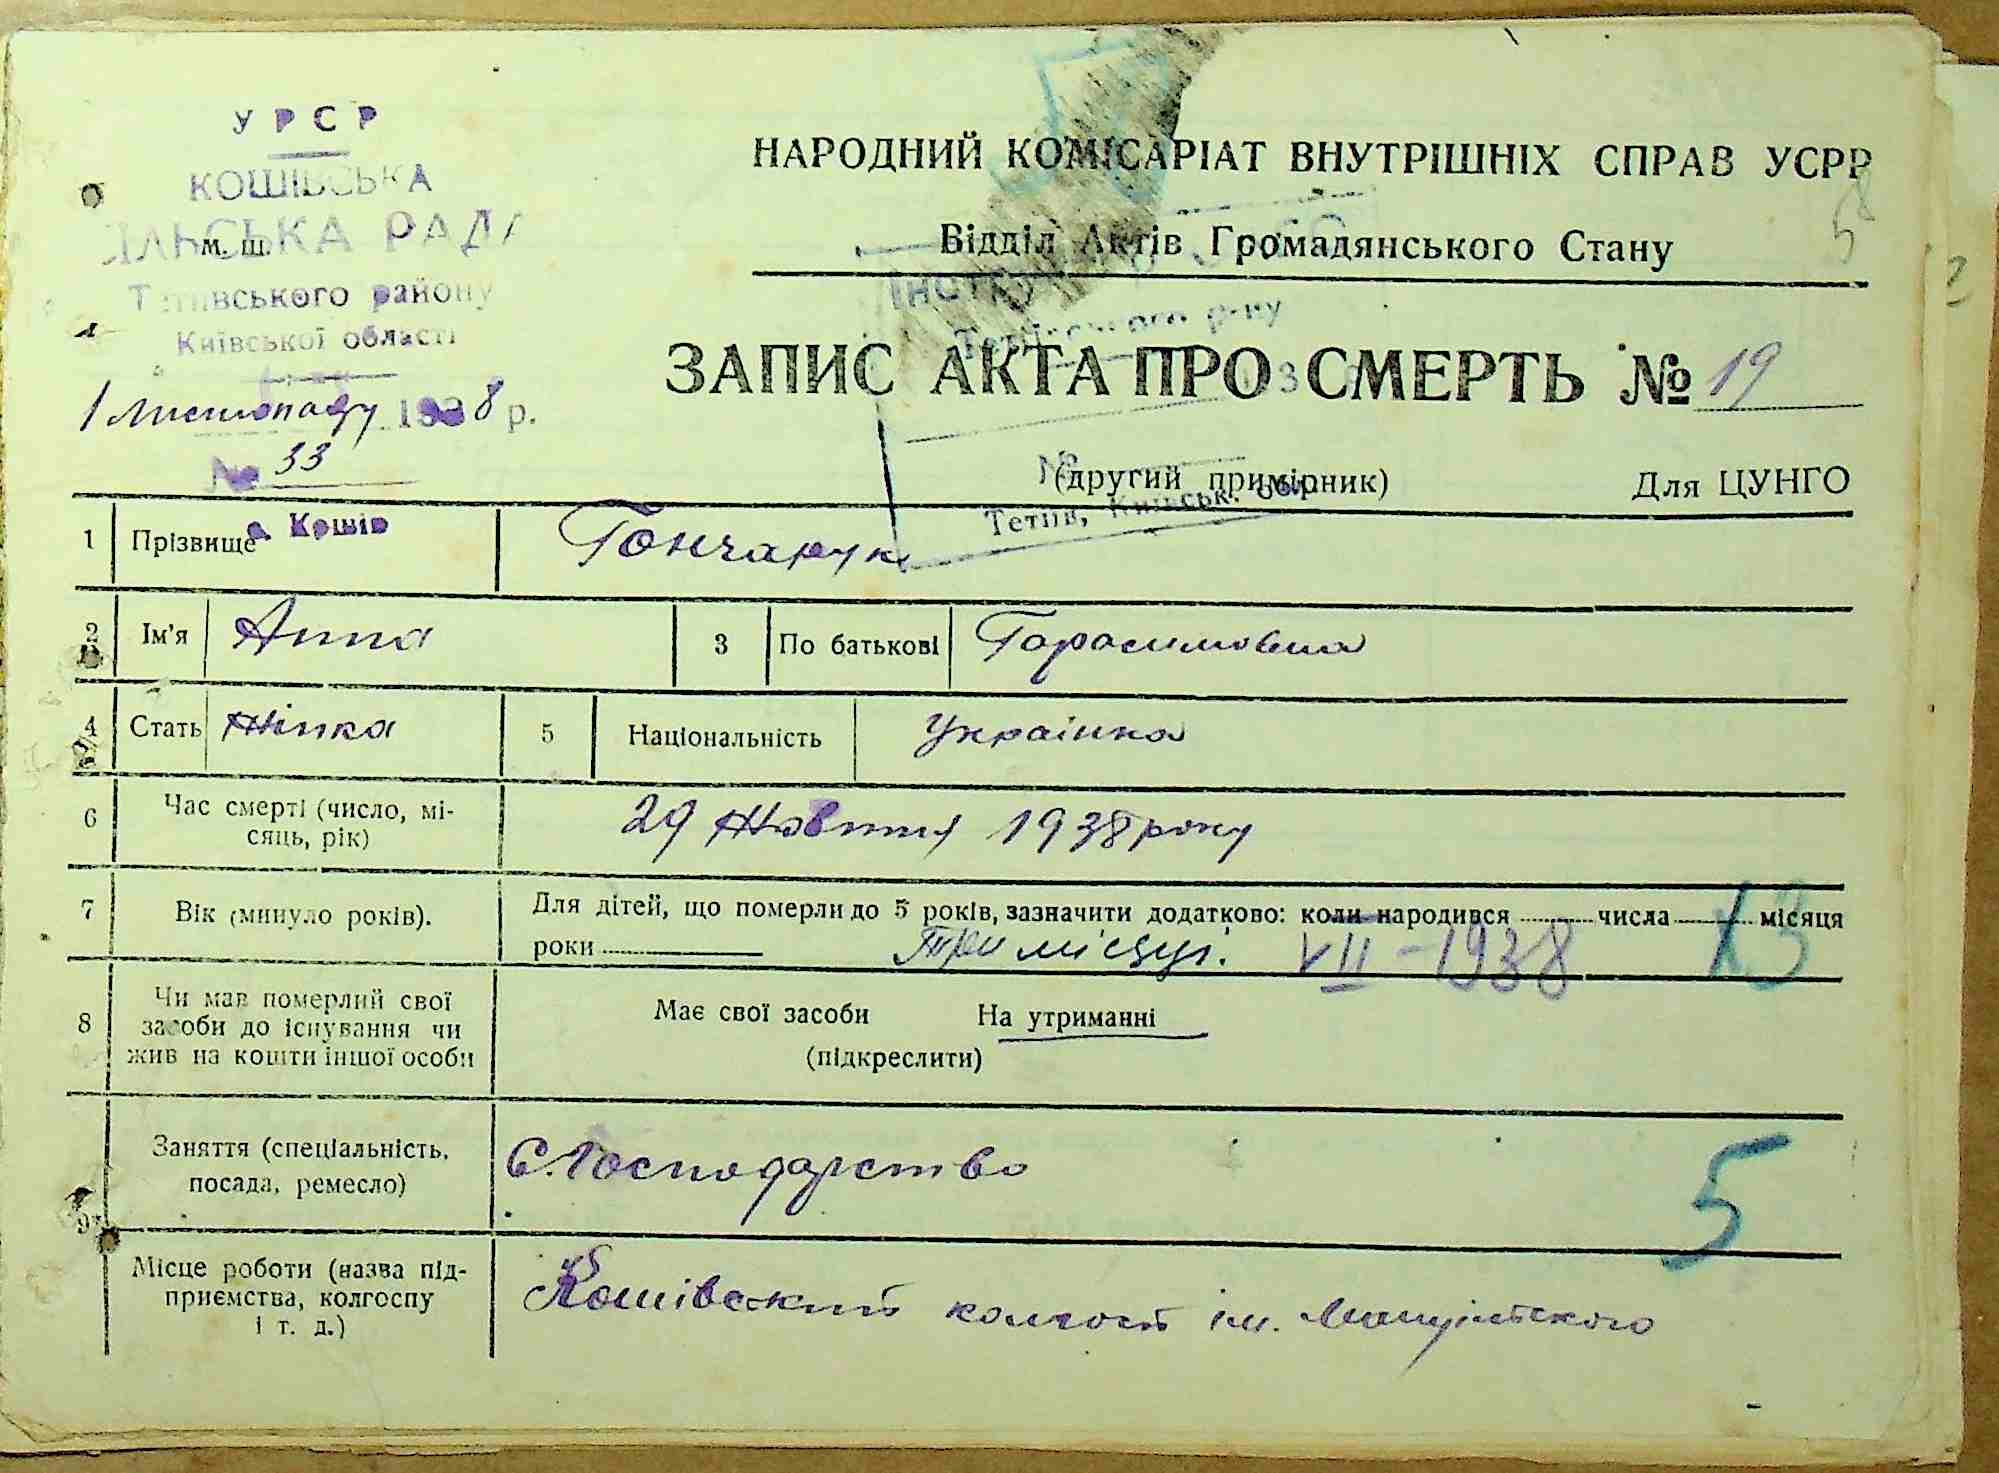 УРСР
КОШІВСЬКА
СІЛЬСЬКА РАДА
м. ш.
Тетіївського району
Київської області
1 Листопаду 1938 р.
№ 33
с. Кошів
НАРОДНИЙ КОМІСАРІАТ ВНУТРІШНІХ СПРАВ УСРР
58
Відділ Актів Громадянського Стану
Тетіївського р-ну
ЗАПИС АКТА ПРО СМЕРТЬ № 19
(другий примірник) Для ЦУНГО
№
Тетіїв, Київськ. обл.
1 Прізвище Гончарук
2 Ім'я Анна 3 По батькові Гарасимовна
4 Стать Жінка 5 Національність Українка
6 Час смерті (число, мі-
сяць, рік) 29 Жовтня 1938 року
7 Вік (минуло років). Для дітей, що померли до 5 років, зазначити додатково: коли народився числа місяця
роки Три місяці. VII - 1938 13
8 Чи мав померлий свої
засоби до існування чи
жив на кошти іншої особи
Має свої засоби На утриманні
(підкреслити)
9 Заняття (спеціальність,
посада, ремесло) С. Господарство
5
Місце роботи (назва під-
приємства, колгоспу
і т. д.) Кошівский колгосп ім.